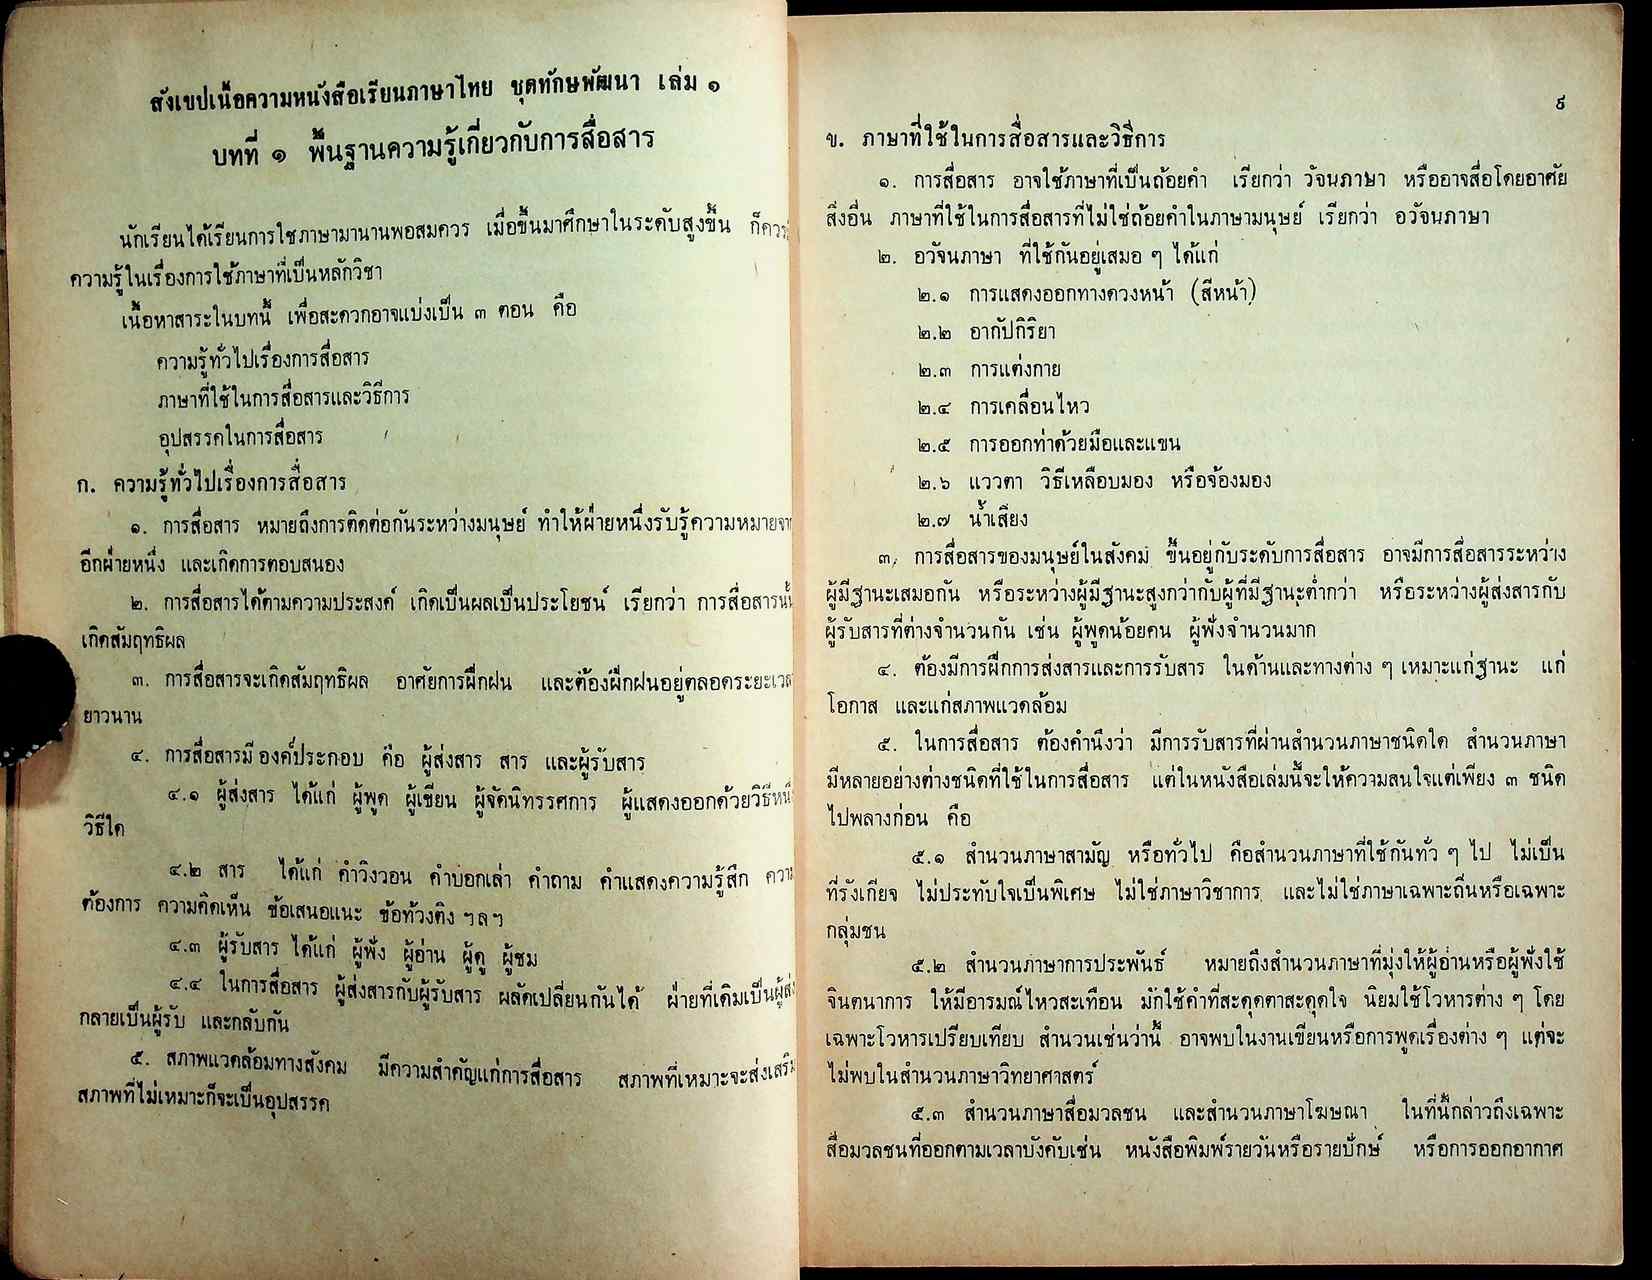 สังเขปเนื้อความหนังสือเรียนภาษาไทย ชุดทักษพัฒนา เล่ม ๑
บทที่ ๑ พื้นฐานความรู้เกี่ยวกับการสื่อสาร
นักเรียนได้เรียนการใชภาษามานานพอสมควร เมื่อขึ้นมาศึกษาในระดับสูงขึ้น
ความรู้ในเรื่องการใช้ภาษาที่เป็นหลักวิชา
เนื้อหาสาระในบทนี้ เพื่อสะดวกอาจแบ่งเป็น ๓ ตอน คือ
ความรู้ทั่วไปเรื่องการสื่อสาร
ภาษาที่ใช้ในการสื่อสารและวิธีการ
อุปสรรคในการสื่อสาร
ก. ความรู้ทั่วไปเรื่องการสื่อสาร
๑. การสื่อสาร หมายถึงการติดต่อกันระหว่างมนุษย์ ทำให้ฝ่ายหนึ่งรับรู้ความหมาย
อีกฝ่ายหนึ่ง และเกิดการตอบสนอง
๒. การสื่อสารได้ตามความประสงค์ เกิดเป็นผลเป็นประโยชน์ เรียกว่า การสื่อสาร
เกิดสัมฤทธิผล
๓. การสื่อสารจะเกิดสัมฤทธิผล อาศัยการฝึกฝน และต้องฝึกฝนอยู่ตลอด
ยาวนาน
๔. การสื่อสารมีองค์ประกอบ คือ ผู้ส่งสาร สาร และผู้รับสาร
๔.๑ ผู้ส่งสาร ได้แก่ ผู้พูด ผู้เขียน ผู้จัดนิทรรศการ ผู้แสดงออกด้วยวิธี
วิธีใด
๔.๒ สาร ได้แก่ คำวิงวอน คำบอกเล่า คำถาม คำแสดงความรู้สึก
ต้องการ ความคิดเห็น ข้อเสนอแนะ ข้อท้วงติง ฯลฯ
๔.๓ ผู้รับสาร ได้แก่ ผู้ฟัง ผู้อ่าน ผู้ดู ผู้ชม
๔.๔ ในการสื่อสาร ผู้ส่งสารกับผู้รับสาร ผลัดเปลี่ยนกันได้ ฝ่ายที่เดิมเป็น
กลายเป็นผู้รับ และกลับกัน
๕. สภาพแวดล้อมทางสังคม มีความสำคัญแก่การสื่อสาร สภาพที่เหมาะจะส่งเสริม
สภาพที่ไม่เหมาะก็จะเป็นอุปสรรค
ข. ภาษาที่ใช้ในการสื่อสารและวิธีการ
๑. การสื่อสาร อาจใช้ภาษาที่เป็นถ้อยคำ เรียกว่า วัจนภาษา หรืออาจสื่อโดยอาศัย
สิ่งอื่น ภาษาที่ใช้ในการสื่อสารที่ไม่ใช่ถ้อยคำในภาษามนุษย์ เรียกว่า อวัจนภาษา
๒. อวัจนภาษา ที่ใช้กันอยู่เสมอ ๆ ได้แก่
๒.๑ การแสดงออกทางดวงหน้า (สีหน้า)
๒.๒ อากัปกิริยา
๒.๓ การแต่งกาย
๒.๔ การเคลื่อนไหว
๒.๕ การออกท่าด้วยมือและแขน
๒.๖ แววตา วิธีเหลือบมอง หรือจ้องมอง
๒.๗ น้ำเสียง
๓. การสื่อสารของมนุษย์ในสังคม ขึ้นอยู่กับระดับการสื่อสาร อาจมีการสื่อสารระหว่าง
ผู้มีฐานะเสมอกัน หรือระหว่างผู้มีฐานะสูงกว่ากับผู้ที่มีฐานะต่ำกว่า หรือระหว่างผู้ส่งสารกับ
ผู้รับสารที่ต่างจำนวนกัน เช่น ผู้พูดน้อยคน ผู้ฟังจำนวนมาก
๔. ต้องมีการฝึกการส่งสารและการรับสาร ในด้านและทางต่าง ๆ เหมาะแก่ฐานะ แก่
โอกาส และแก่สภาพแวดล้อม
๕. ในการสื่อสาร ต้องคำนึงว่า มีการรับสารที่ผ่านสำนวนภาษาชนิดใด สำนวนภาษา
มีหลายอย่างต่างชนิดที่ใช้ในการสื่อสาร แต่ในหนังสือเล่มนี้จะให้ความสนใจแต่เพียง ๓ ชนิด
ไปพลางก่อน คือ
๕.๑ สำนวนภาษาสามัญ หรือทั่วไป คือสำนวนภาษาที่ใช้กันทั่ว ๆ ไป ไม่เป็น
ที่รังเกียจ ไม่ประทับใจเป็นพิเศษ ไม่ใช่ภาษาวิชาการ และไม่ใช่ภาษาเฉพาะถิ่นหรือเฉพาะ
กลุ่มชน
๕.๒ สำนวนภาษาการประพันธ์ หมายถึงสำนวนภาษาที่มุ่งให้ผู้อ่านหรือผู้ฟังใช้
จินตนาการ ให้มีอารมณ์ไหวสะเทือน มักใช้คำที่สะดุดตาสะดุดใจ นิยมใช้โวหารต่าง ๆ โดย
เฉพาะโวหารเปรียบเทียบ สำนวนเช่นว่านี้ อาจพบในงานเขียนหรือการพูดเรื่องต่าง ๆ แต่จะ
ไม่พบในสำนวนภาษาวิทยาศาสตร์
๕.๓ สำนวนภาษาสื่อมวลชน และสำนวนภาษาโฆษณา ในที่นี้กล่าวถึงเฉพาะ
สื่อมวลชนที่ออกตามเวลาบังคับเช่น หนังสือพิมพ์รายวันหรือรายปักษ์ หรือการออกอากาศ